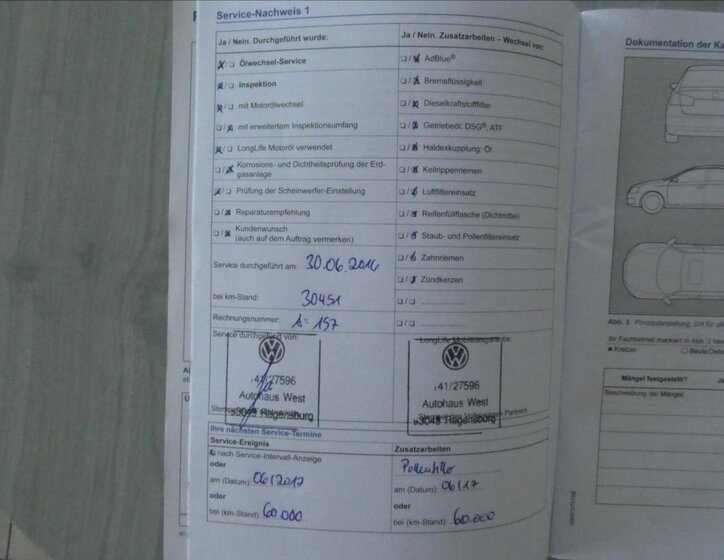 Service-Nachweis 1
Ja / Nein. Durchgeführt wurde:
Ölwechsel-Service
Inspektion
mit Motorölwechsel
mit erweitertem Inspektionsumfang
LongLife Motoröl verwendet
Korrosions- und Dichtheitsprüfung der Erd-
gasanlage
Prüfung der Scheinwerfer-Einstellung
Reparaturempfehlung
Kundenwunsch
(auch auf dem Auftrag vermerken)
Service durchgeführt am: 30.06.2016
bei km-Stand: 30451
Rechnungsnummer: A: 157
Service durchgeführt von:
41/27596
Autohaus West
93049 Regensburg
Ja / Nein. Zusatzarbeiten – Wechsel von:
AdBlue®
Bremsflüssigkeit
Dieselkraftstofffilter
Getriebeöl: DSG®, ATF
Haldexkupplung: Öl
Keilrippenriemen
Luftfiltereinsatz
Reifenfüllflasche (Dichtmittel)
Staub- und Pollenfiltereinsatz
Zahnriemen
Zündkerzen
LongLife Mobilitätsgarantie:
41/27596
Autohaus West
93049 Regensburg
Ihre nächsten Service-Termine
Service-Ereignis
nach Service-Intervall-Anzeige
oder
am (Datum): 06/2017
oder
bei (km-Stand): 60.000
Zusatzarbeiten
Pollenfilter
am (Datum): 06/17
oder
bei (km-Stand): 60.000
Dokumentation der Ka
Abb. 3 Prinzipdarstellung. Gilt für a
Ihr Fachbetrieb markiert in Abb. 3 be
Kratzer
Beule/Delle
Mängel festgestellt? Ja
Beschreibung der Mängel: